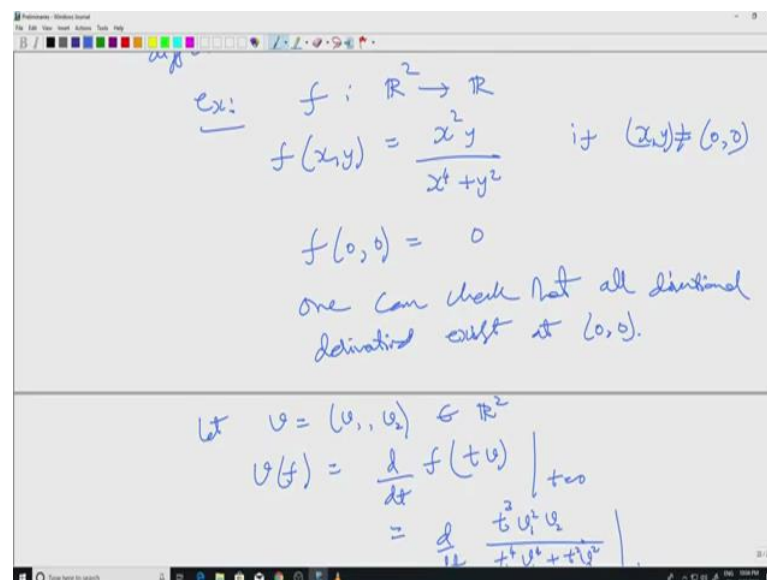 Preliminaries - Windows Journal
File Edit View Insert Actions Tools Help
B I
diff
Ex: f : ℝ² → ℝ
f(x,y) = x²y / (x⁴ + y²) if (x,y) ≠ (0,0)
f(0,0) = 0
one can check that all directional
derivatives exist at (0,0).
Let v = (v₁, v₂) ∈ ℝ²
v(f) = d/dt f(tv) |t=0
= d/dt t³ v₁² v₂ / (t⁴ v⁴ + t² v²) |
Type here to search
ENG 10:04 PM